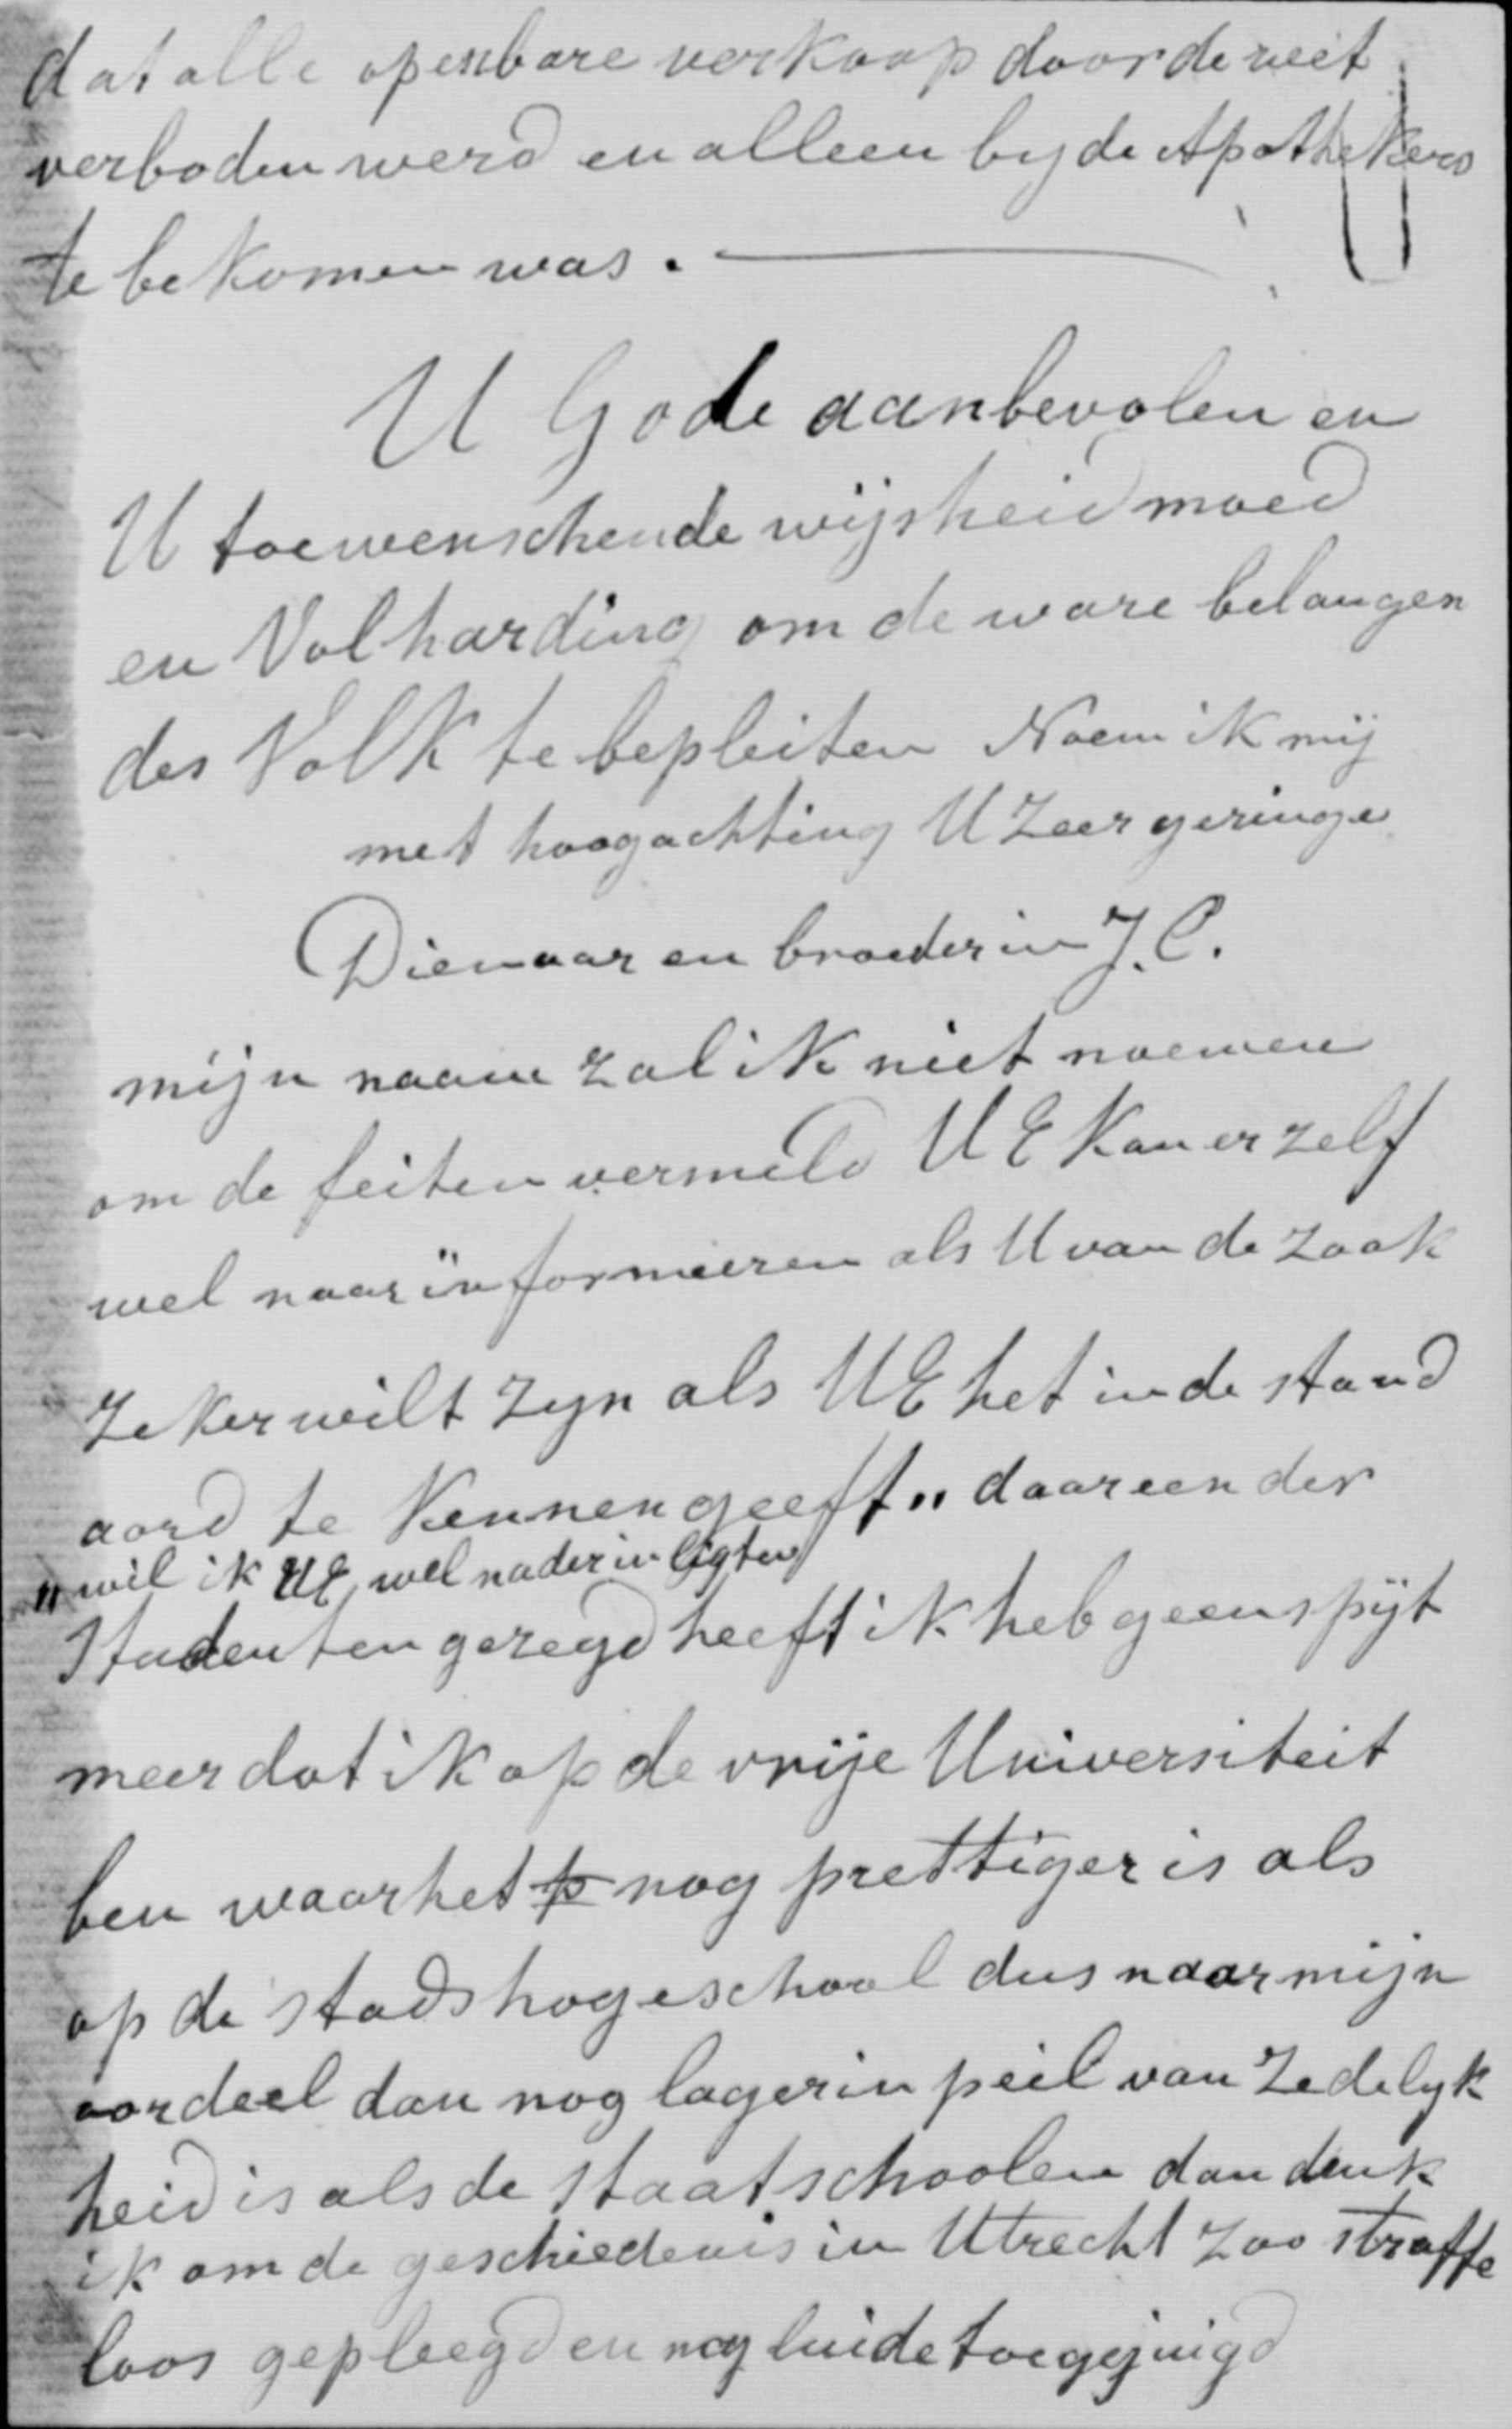 dat alle openbare verkoop door de wet
verboden werd en alleen by de Apothekers
te bekomen was.
U Gode aanbevolen en
U toewenschende wijsheid moed
en Volharding om de ware belangen
des Volk te bepleiten Noem ik mij
met hoogachting U Zeer geringe
Dienaar en broeder in J. C.
mijn naam zal ik niet noemen
om de feiten vermeld UE Kan er zelf
wel naar informeeren als U van de zaak
zeker wilt zyn als UE het in de stand
aard te Kennen geeft „ daar een der
„ wil ik UE wel nader inligten
Studenten gezegd heeft ik heb geen spijt
meer dat ik op de vrije Universiteit
ben waar het p nog prettiger is als
op de stads hogeschool dus naar mijn
oordeel dan nog lager in peil van Zedelyk
heid is als de Staatschoolen dan denk
ik om de geschiedenis in Utrecht zoo straffe
loos gepleegd en nog luide toegejuigd